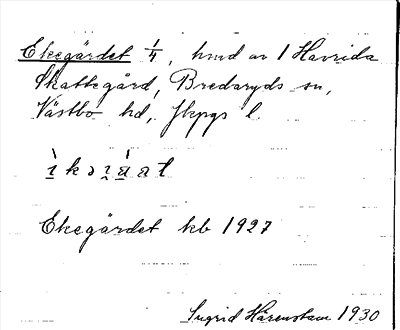 Ekegärdet 1/4, hmd av 1 Havrida
Skattegård, Bredaryds sn,
Västbo hd, Jkpgs l.
Ekegärdet kb 1927
Sigrid Hårenstam 1930